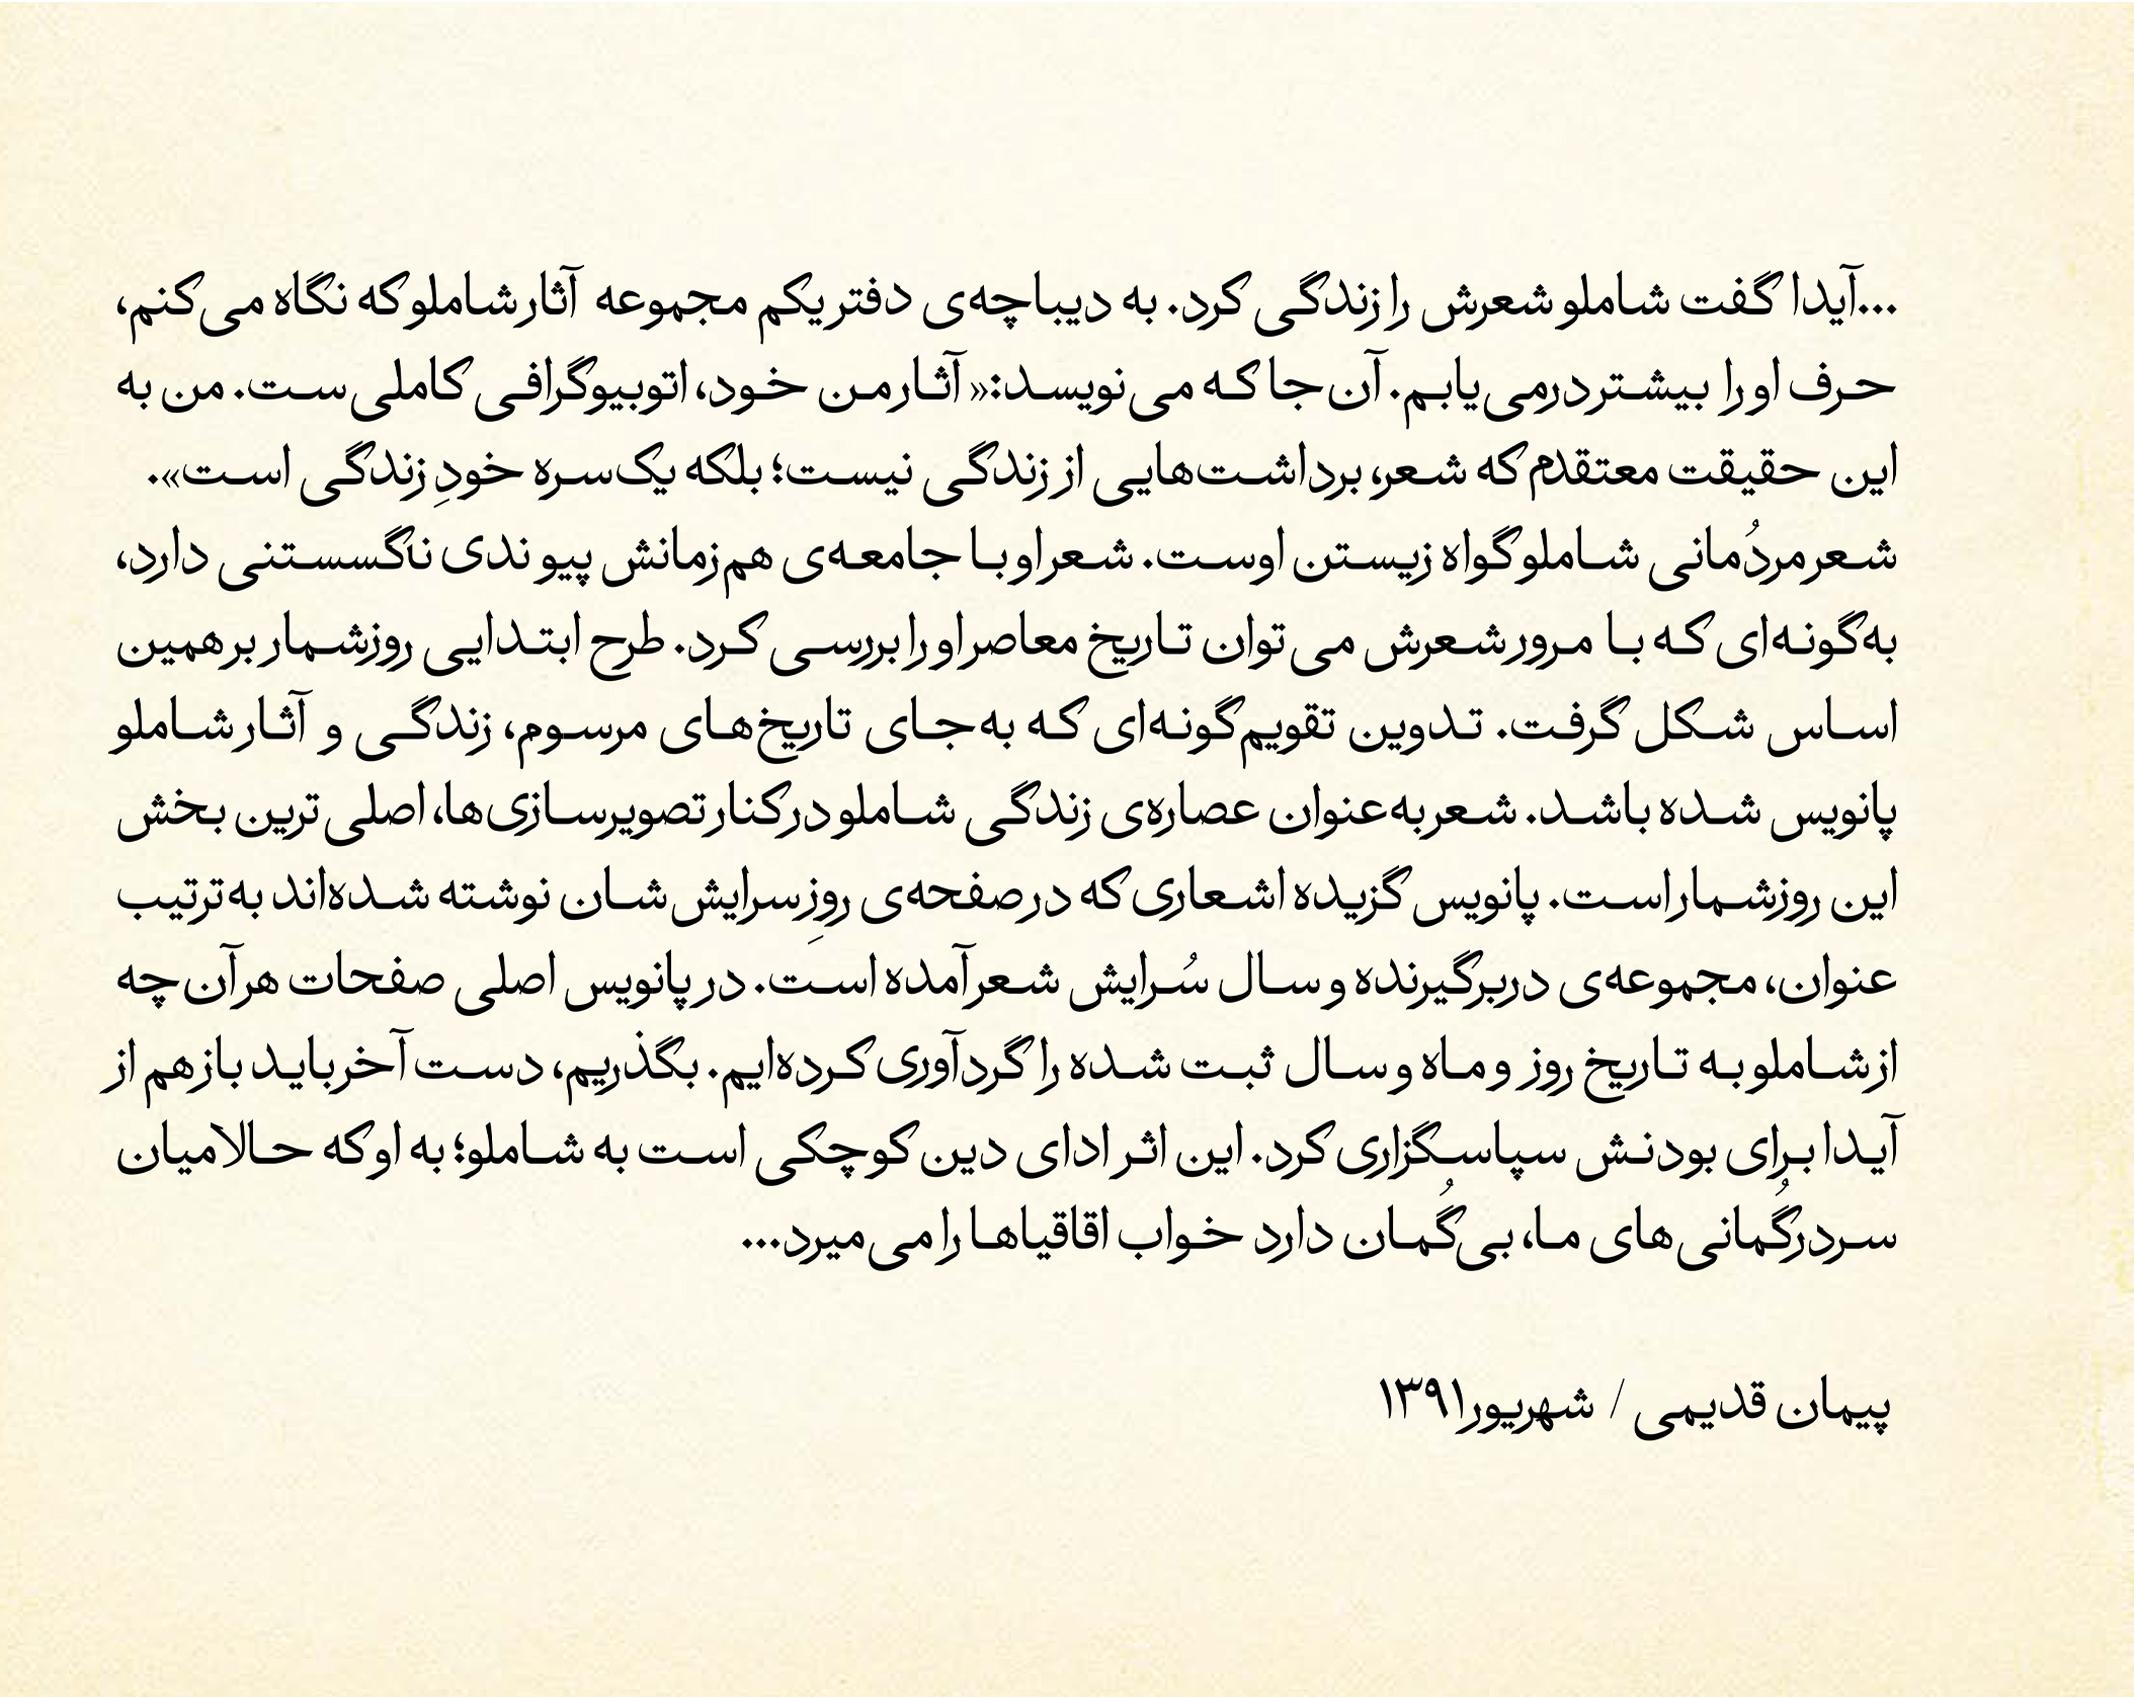 ...آیدا گفت شاملو شعرش را زندگی کرد. به دیباچه‌ی دفتر یکم مجموعه آثار شاملو که نگاه می‌کنم،
حرف او را بیشتر درمی‌یابم. آن‌جا که می‌نویسد:« آثار من خود، اتوبیوگرافی کاملی‌ست. من به
این حقیقت معتقدم که شعر، برداشت‌هایی از زندگی نیست؛ بلکه یک‌سره خودِ زندگی است».
شعر مردُمانی شاملو گواه زیستن اوست. شعر او با جامعه‌ی هم‌زمانش پیوندی ناگسستنی دارد،
به‌گونه‌ای که با مرور شعرش می‌توان تاریخ معاصر او را بررسی کرد. طرح ابتدایی روزشمار بر همین
اساس شکل گرفت. تدوین تقویم‌گونه‌ای که به‌جای تاریخ‌های مرسوم، زندگی و آثار شاملو
پانویس شده باشد. شعر به‌عنوان عصاره‌ی زندگی شاملو در کنار تصویرسازی‌ها، اصلی‌ترین بخش
این روزشمار است. پانویس گزیده اشعاری که در صفحه‌ی روزِ سرایش‌شان نوشته شده‌اند به‌ترتیب
عنوان، مجموعه‌ی دربرگیرنده و سال سُرایش شعر آمده است. در پانویس اصلی صفحات هر آن‌چه
از شاملو به تاریخ روز و ماه و سال ثبت شده را گردآوری کرده‌ایم. بگذریم، دست آخر باید باز هم از
آیدا برای بودنش سپاسگزاری کرد. این اثر ادای دین کوچکی است به شاملو؛ به او که حالا میان
سردرگُمانی‌های ما، بی‌گُمان دارد خواب اقاقیاها را می‌میرد...
پیمان قدیمی / شهریور۱۳۹۱